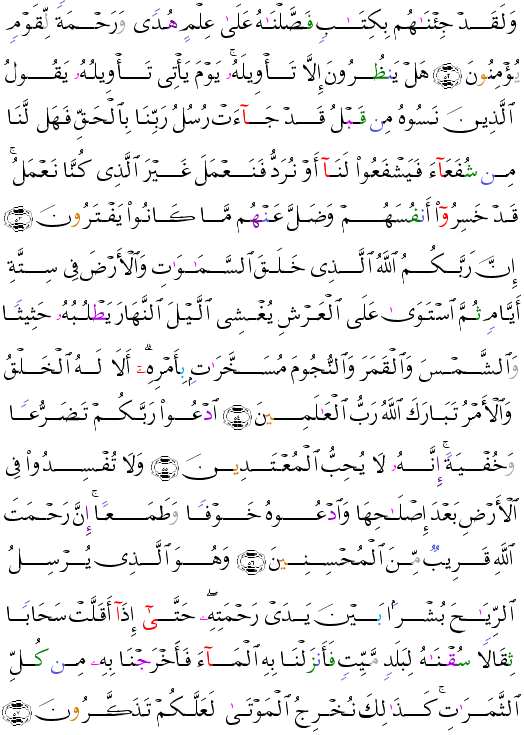 وَلَقَدْ جِئْنَٰهُم بِكِتَٰبٍ فَصَّلْنَٰهُ عَلَىٰ عِلْمٍ هُدًى وَرَحْمَةً لِّقَوْمٍ
يُؤْمِنُونَ ۝٥٢ هَلْ يَنظُرُونَ إِلَّا تَأْوِيلَهُۥ ۚ يَوْمَ يَأْتِى تَأْوِيلُهُۥ يَقُولُ
ٱلَّذِينَ نَسُوهُ مِن قَبْلُ قَدْ جَآءَتْ رُسُلُ رَبِّنَا بِٱلْحَقِّ فَهَل لَّنَا
مِن شُفَعَآءَ فَيَشْفَعُوا۟ لَنَآ أَوْ نُرَدُّ فَنَعْمَلَ غَيْرَ ٱلَّذِى كُنَّا نَعْمَلُ ۚ
قَدْ خَسِرُوٓا۟ أَنفُسَهُمْ وَضَلَّ عَنْهُم مَّا كَانُوا۟ يَفْتَرُونَ ۝٥٣
إِنَّ رَبَّكُمُ ٱللَّهُ ٱلَّذِى خَلَقَ ٱلسَّمَٰوَٰتِ وَٱلْأَرْضَ فِى سِتَّةِ
أَيَّامٍ ثُمَّ ٱسْتَوَىٰ عَلَى ٱلْعَرْشِ يُغْشِى ٱلَّيْلَ ٱلنَّهَارَ يَطْلُبُهُۥ حَثِيثًا
وَٱلشَّمْسَ وَٱلْقَمَرَ وَٱلنُّجُومَ مُسَخَّرَٰتٍۭ بِأَمْرِهِۦٓ ۗ أَلَا لَهُ ٱلْخَلْقُ
وَٱلْأَمْرُ تَبَارَكَ ٱللَّهُ رَبُّ ٱلْعَٰلَمِينَ ۝٥٤ ٱدْعُوا۟ رَبَّكُمْ تَضَرُّعًا
وَخُفْيَةً ۚ إِنَّهُۥ لَا يُحِبُّ ٱلْمُعْتَدِينَ ۝٥٥ وَلَا تُفْسِدُوا۟ فِى
ٱلْأَرْضِ بَعْدَ إِصْلَٰحِهَا وَٱدْعُوهُ خَوْفًا وَطَمَعًا ۚ إِنَّ رَحْمَتَ
ٱللَّهِ قَرِيبٌ مِّنَ ٱلْمُحْسِنِينَ ۝٥٦ وَهُوَ ٱلَّذِى يُرْسِلُ
ٱلرِّيَٰحَ بُشْرًۢا بَيْنَ يَدَىْ رَحْمَتِهِۦ ۖ حَتَّىٰٓ إِذَآ أَقَلَّتْ سَحَابًا
ثِقَالًا سُقْنَٰهُ لِبَلَدٍ مَّيِّتٍ فَأَنزَلْنَا بِهِ ٱلْمَآءَ فَأَخْرَجْنَا بِهِۦ مِن كُلِّ
ٱلثَّمَرَٰتِ ۚ كَذَٰلِكَ نُخْرِجُ ٱلْمَوْتَىٰ لَعَلَّكُمْ تَذَكَّرُونَ ۝٥٧